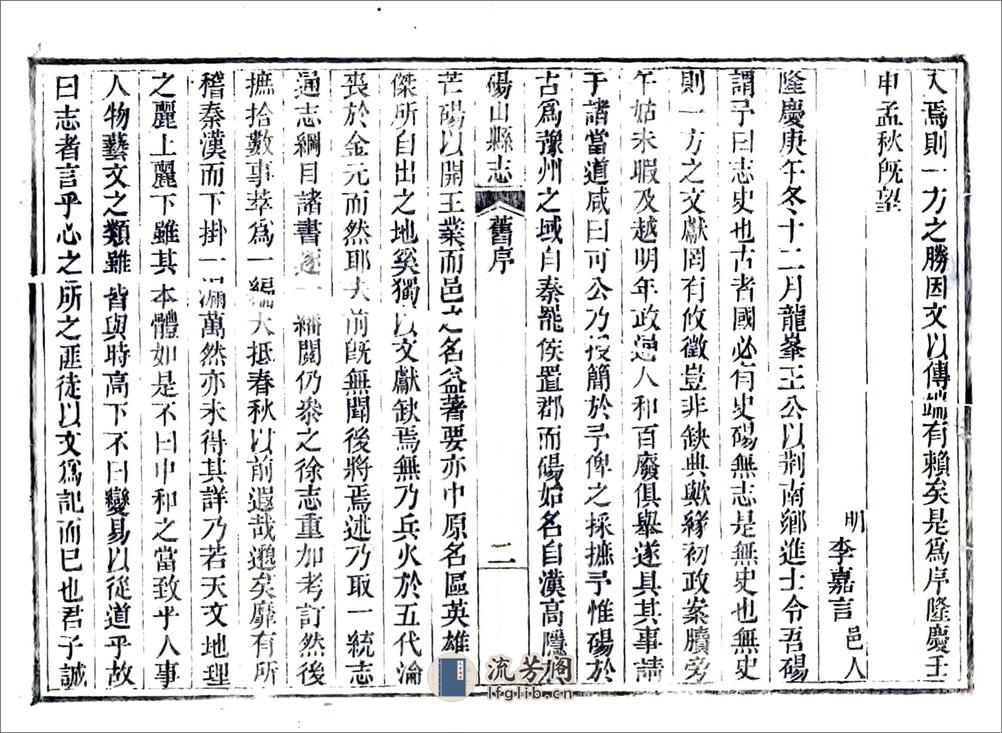 人焉則一方之勝因文以傳端有賴矣是爲序隆慶壬
申孟秋旣望
明 李嘉言 邑人
隆慶庚午冬十二月龍峯王公以荆南鄉進士令吾碭
謂予曰志史也古者國必有史碭無志是無史也無史
則一方之文獻罔有攸徵豈非缺典歟緣初政案牘旁
午姑未暇及越明年政通人和百廢俱舉遂具其事請
于諸當道咸曰可公乃授簡於予俾之採摭予惟碭於
古爲豫州之域自秦罷侯置郡而碭始名自漢高隱於
碭山縣志 舊序 二
芒碭以開王業而邑之名益著要亦中原名區英雄
傑所自出之地奚獨以文獻缺焉無乃兵火於五代淪
喪於金元而然耶夫前旣無聞後將焉述乃取一統志
通志綱目諸書逐一繙閱仍叅之徐志重加考訂然後
摭拾數事萃爲一編大抵春秋以前遐哉邈矣靡有所
稽秦漢而下掛一漏萬然亦未得其詳乃若天文地理
之麗上麗下雖其本體如是不曰中和之當致乎人事
人物藝文之類雖皆與時高下不曰變易以從道乎故
曰志者言乎心之所之匪徒以文爲記而已也君子誠
流芳阁
lfglib.cn